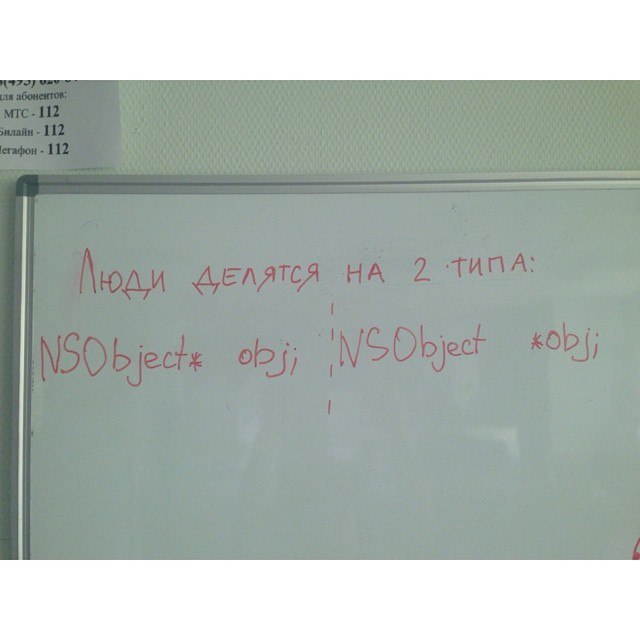 для абонентов:
МТС - 112
Билайн - 112
Мегафон - 112
Люди делятся на 2 типа:
NSObject* obj; NSObject *obj;